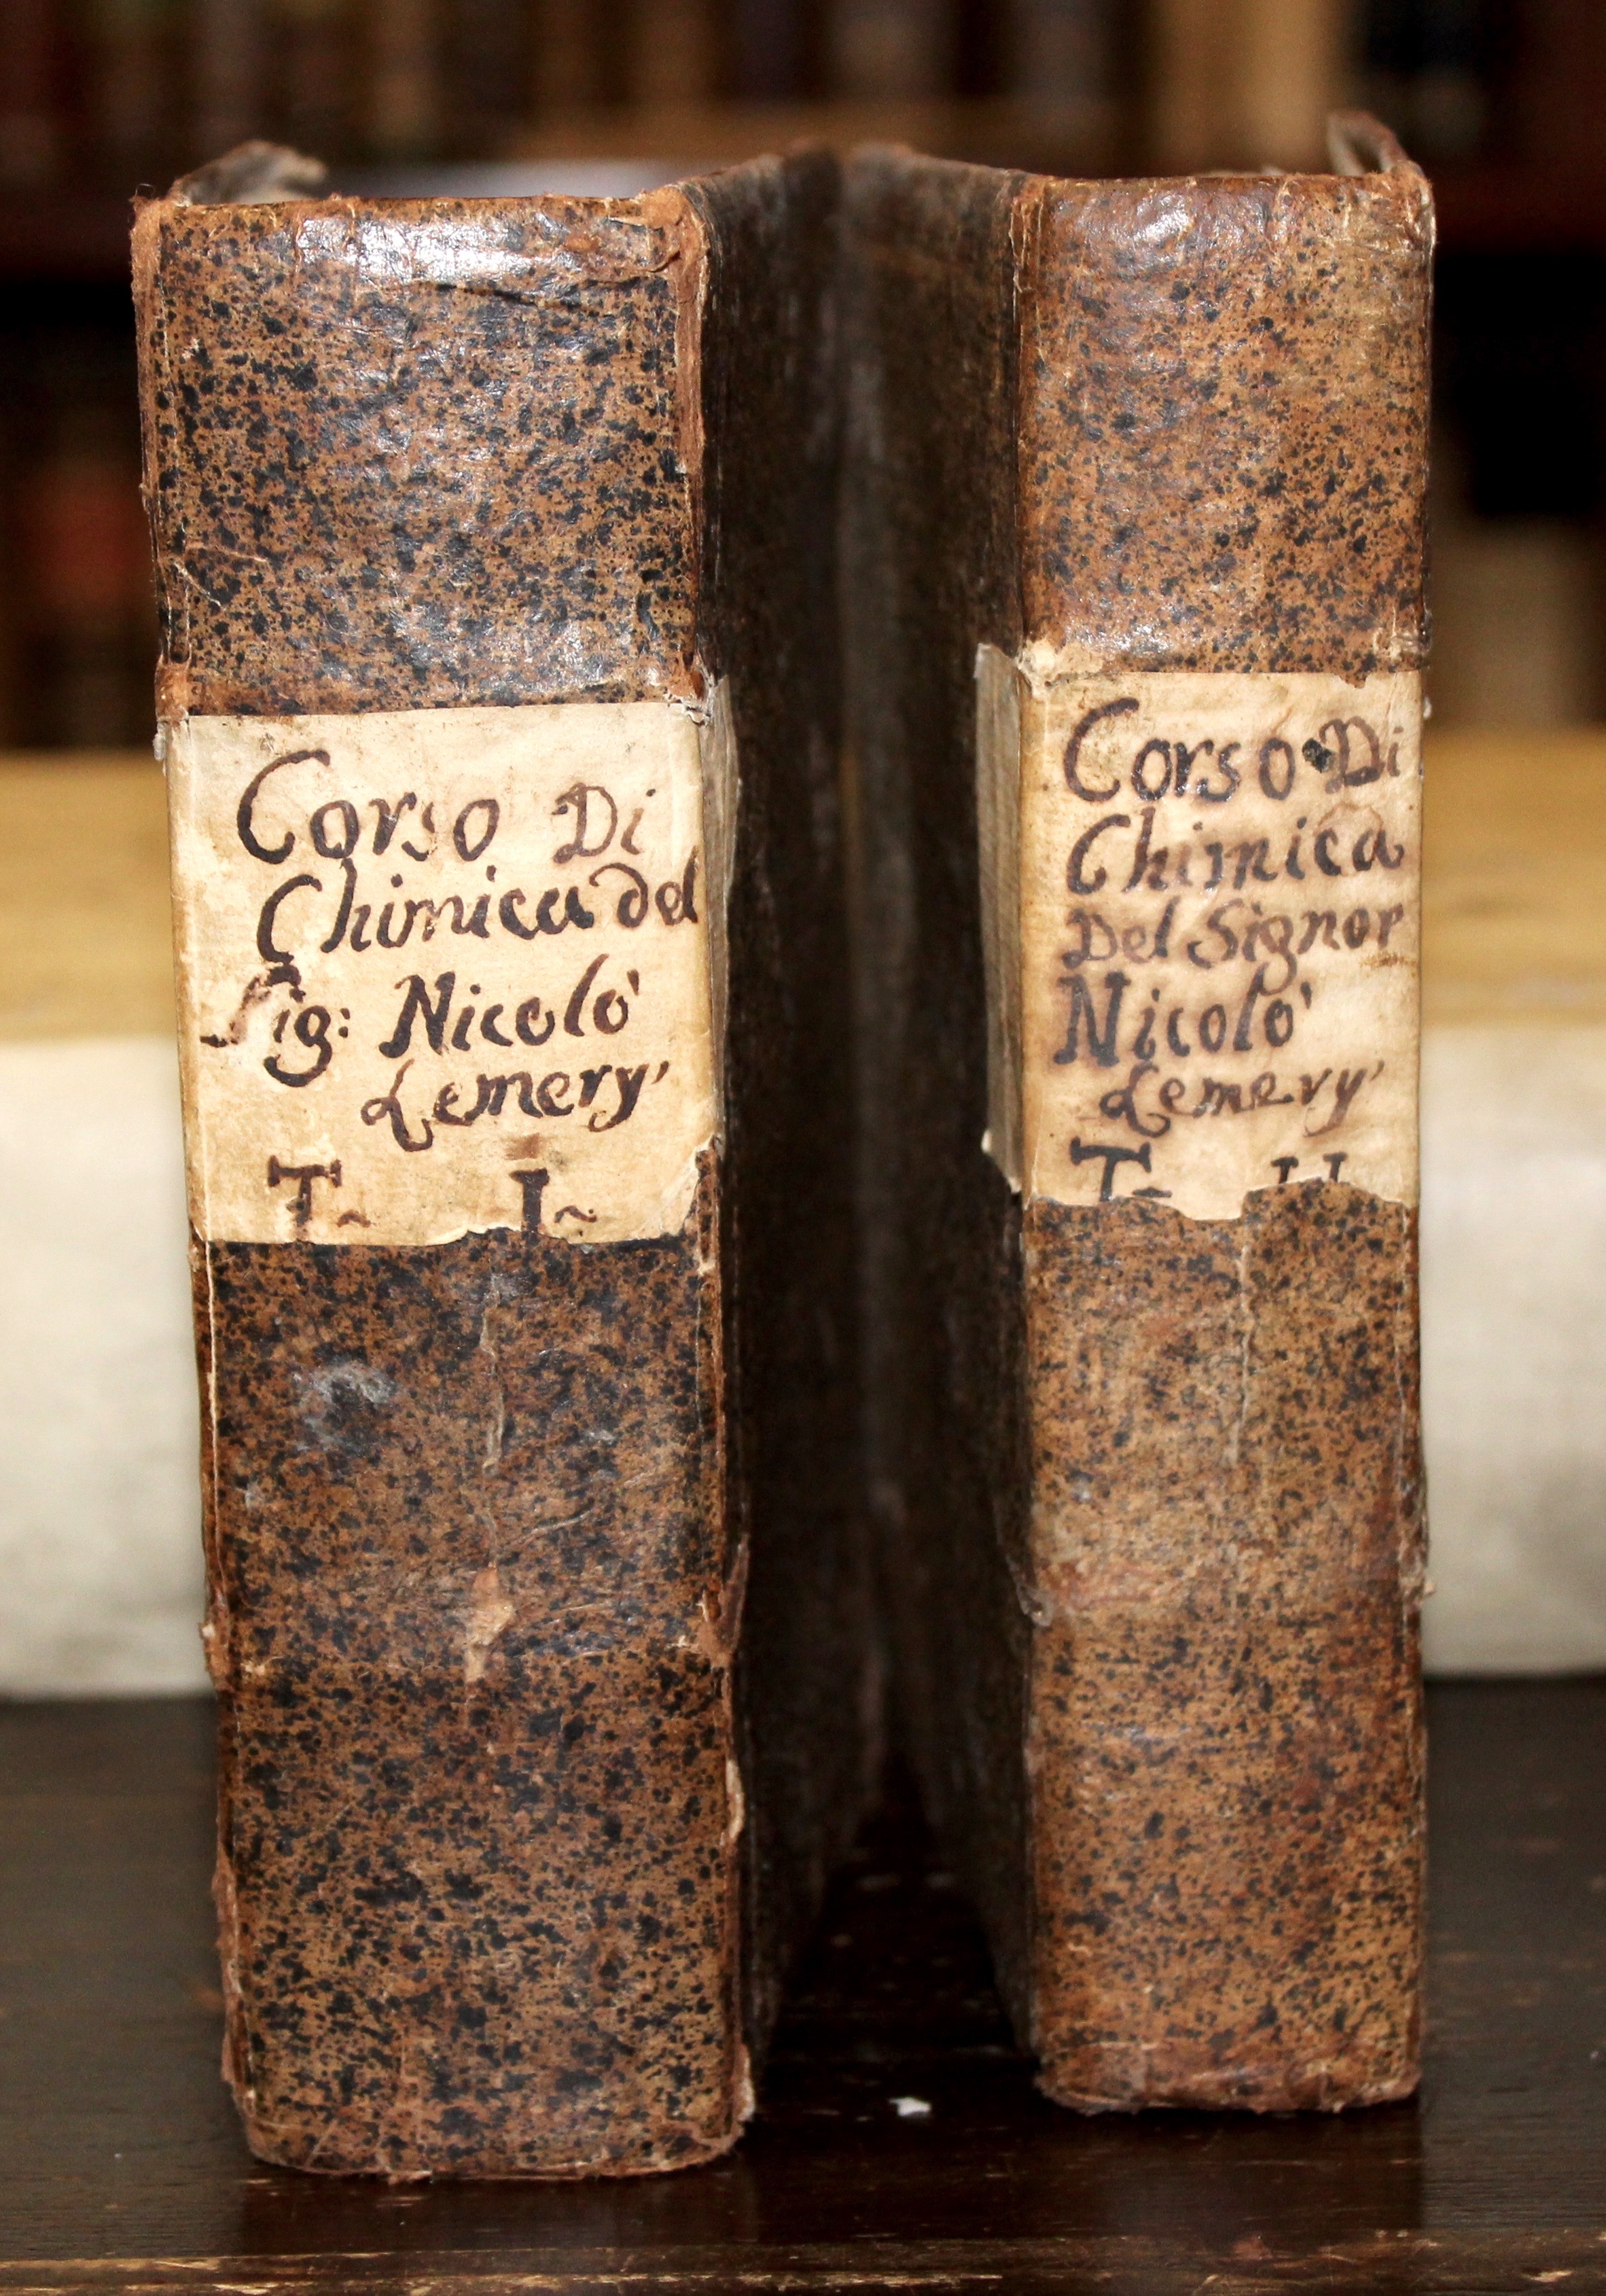 Corso Di
Chimica del
Sig: Nicolò
Lemery
T~ I~
Corso Di
Chimica
Del Signor
Nicolò
Lemery
T~ II